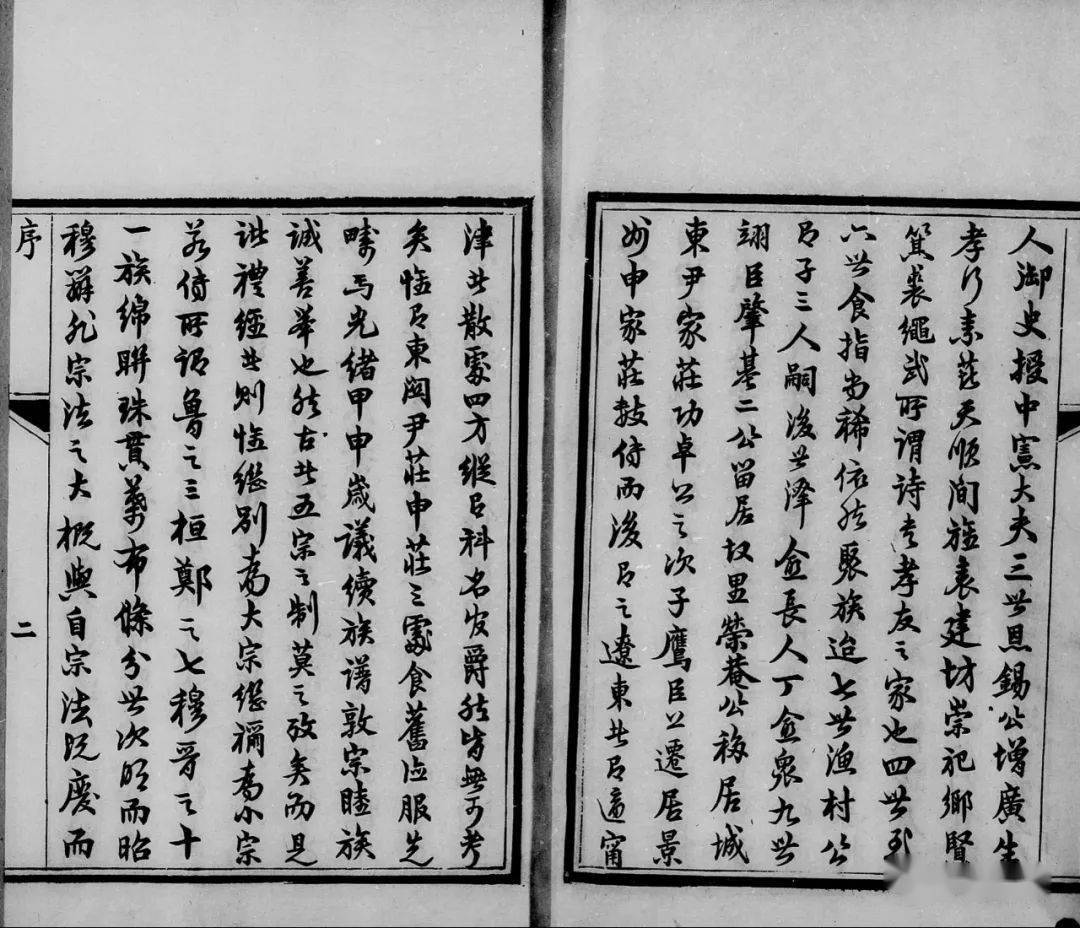 人御史授中憲大夫三世思錫公增廣生
孝行素著天順間旌表建坊崇祀鄉賢
箕裘繩武所謂詩書孝友之家也四世至
六世食指尚稀依然聚族迨七世漁村公
有子三人嗣後世澤愈長人丁愈衆九世
翊臣肇基二公留居故里榮菴公移居城
東尹家莊功卓公之次子鷹臣公遷居景
州申家莊數傳而後有之遼東者有適甯
津者散處四方縱有科名官爵然皆無可考
矣惟有東關尹莊申莊三處食舊德服先
疇焉光緒甲申歲議續族譜敦宗睦族
誠善舉也然古者五宗之制莫之攷矣而見
諸禮經者則惟繼別為大宗繼禰為小宗
若傳所謂魯之三桓鄭之七穆晉之十
一族綿聯珠貫葉布條分世次明而昭
穆辨然宗法之大概與自宗法既廢而
序
二